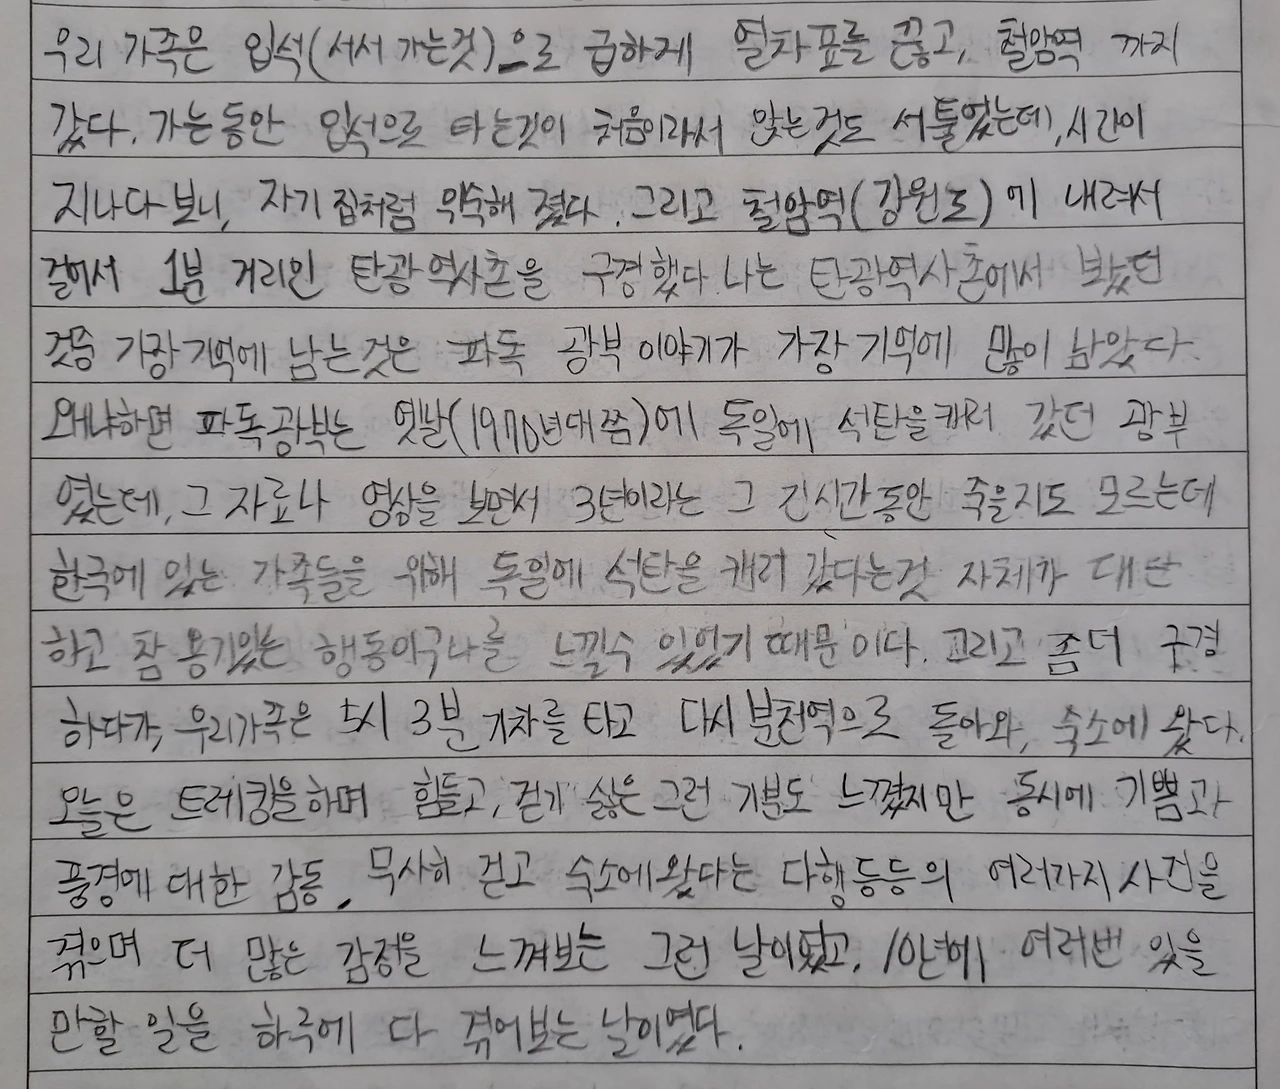 우리 가족은 입석(서서 가는것)으로 급하게 열차표를 끊고, 철암역 까지
갔다. 가는동안 입석으로 타는것이 처음이라서 앉는것도 서툴었는데, 시간이
지나다 보니, 자기 집처럼 익숙해 졌다. 그리고 철암역(강원도)에 내려서
걸어서 1분 거리인 탄광역사촌을 구경했다 나는 탄광역사촌에서 봤던
것중 가장 기억에 남는것은 파독 광부 이야기가 가장 기억에 많이 남았다.
왜냐하면 파독광부는 옛날(1970년대쯤)에 독일에 석탄을캐러 갔던 광부
였는데, 그 자료나 영상을 보면서 3년이라는 그 긴시간동안 죽을지도 모르는데
한국에 있는 가족들을 위해 독일에 석탄을 캐러 갔다는것 자체가 대단
하고 참 용기있는 행동이구나를 느낄수 있었기 때문이다. 그리고 좀더 구경
하다가, 우리가족은 5시 3분 기차를 타고 다시 분천역으로 돌아와, 숙소에 왔다.
오늘은 트레킹을하며 힘들고, 걷기 싫은 그런 기분도 느꼈지만 동시에 기쁨과
풍경에 대한 감동, 무사히 걷고 숙소에왔다는 다행등등의 여러가지 사건을
겪으며 더 많은 감정을 느껴보는 그런 날이었고, 10년에 여러번 있을
만할 일을 하루에 다 겪어보는 날이였다.